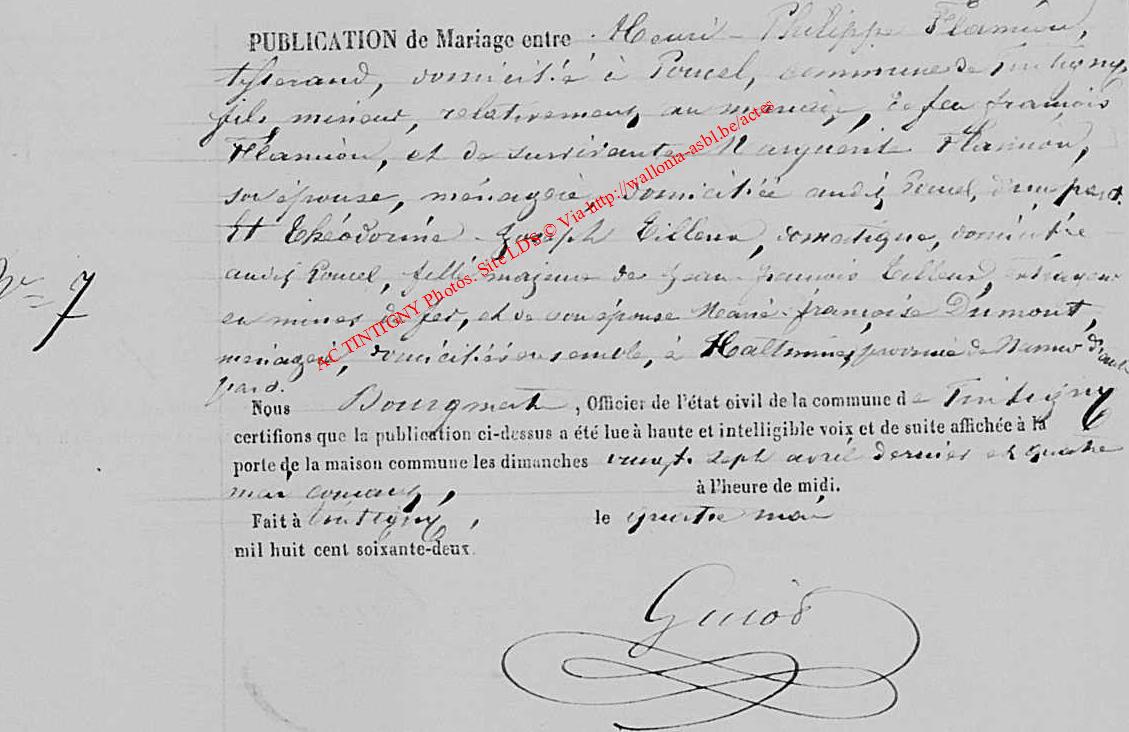 PUBLICATION de Mariage entre : Henri - Philippe Flamion,
tisserand, domicilié à Poncel, commune de Tintigny,
fils mineur, relativement au mariage, de feu françois
Flamion, et de survivante Marguerite Flamion,
son épouse, ménagère, domiciliée audit Poncel, d'une part.
Et Théodorine - Joseph Tilleux, domestique, domiciliée
audit Poncel, fille majeure de Jean françois Tilleux,
N° 7
en mines de fer, et de son épouse Marie-françoise Dumont,
ménagère, domiciliés ensemble, à Haltinne, province de Namur d'autre
part.
Nous Bourgmestre, Officier de l'état civil de la commune de Tintigny
certifions que la publication ci-dessus a été lue à haute et intelligible voix et de suite affichée à la
porte de la maison commune les dimanches vingt sept avril dernier et quatre
mai courant, à l'heure de midi.
Fait à Tintigny, le quatre mai
mil huit cent soixante-deux.
Guiot
AC TINTIGNY Photos. Site LDS © Via-http://wallonia-asbl.be/actes